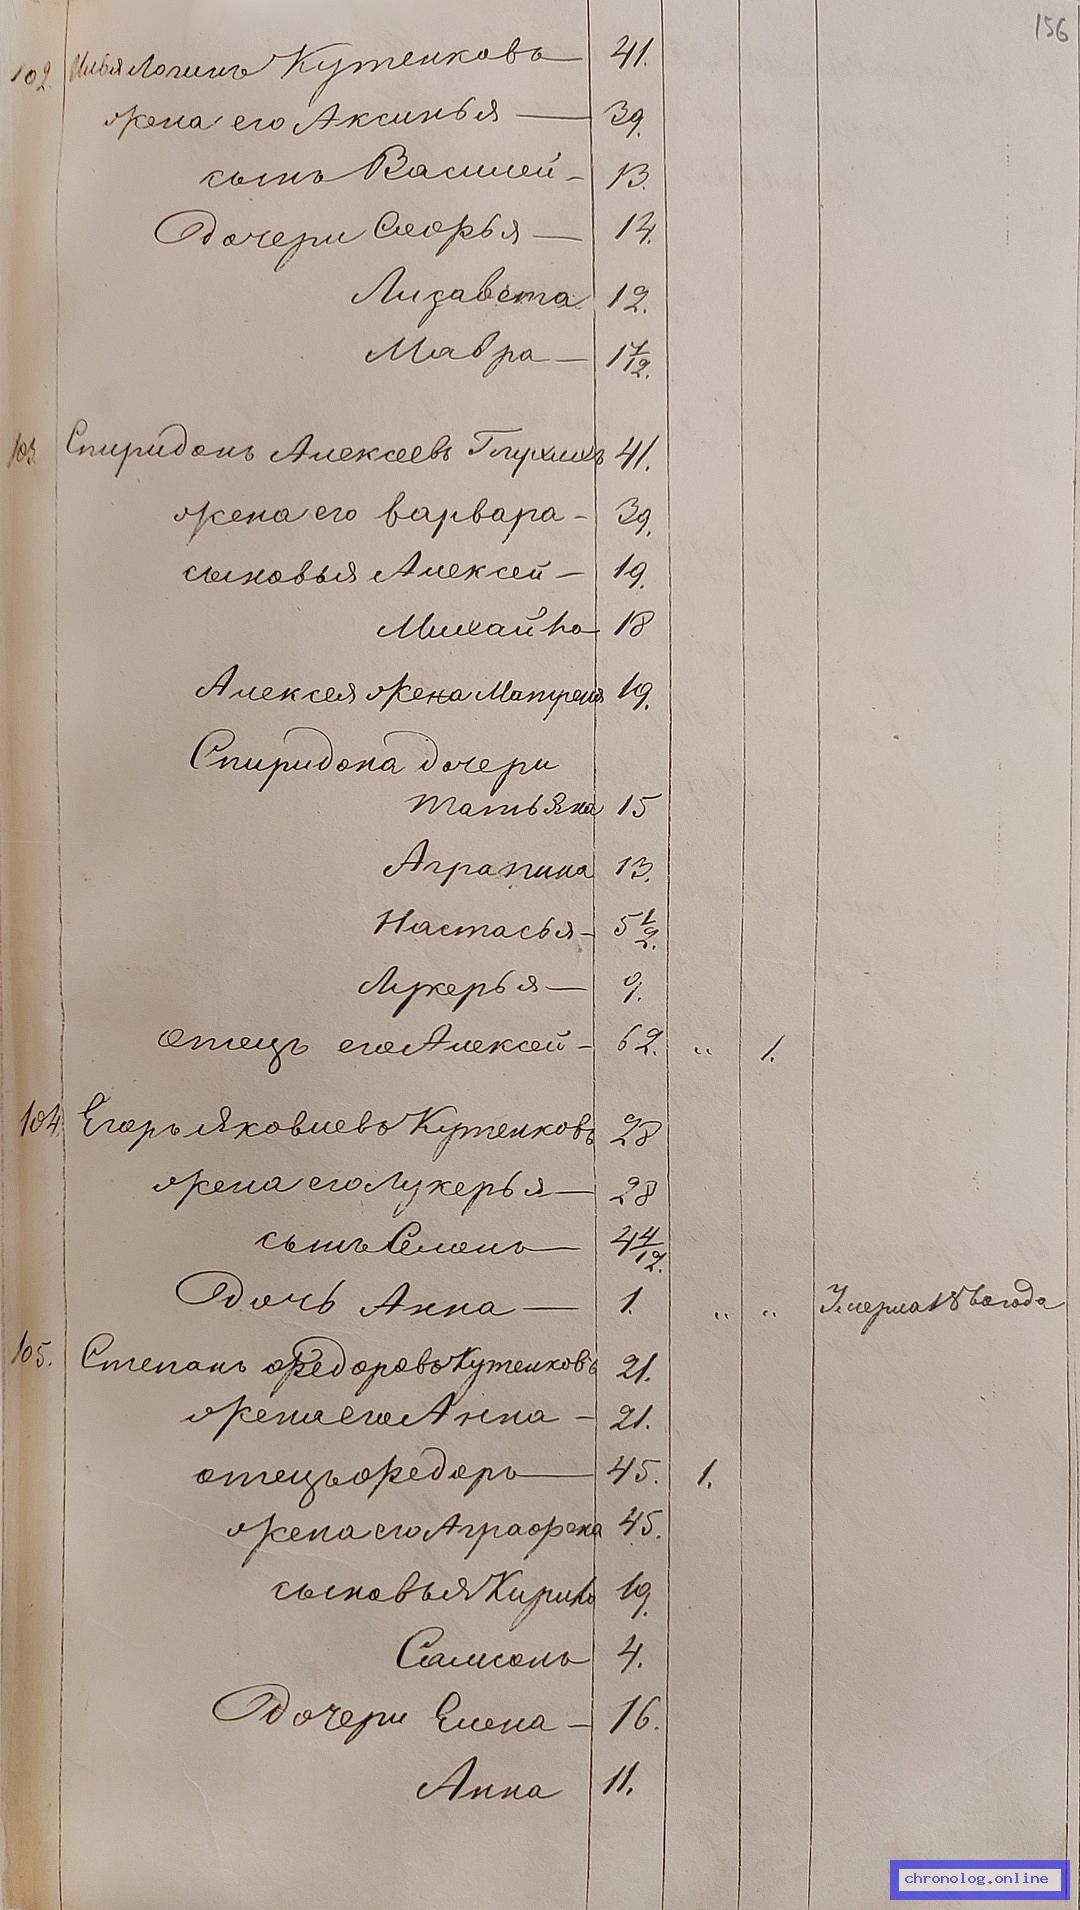 156
102. Илья Логинъ Кутенковъ 41.
жена его Аксинья — 39.
сынъ Василей - 13.
Дочери Софья — 14.
Лизавета 12.
Мавра — 1 7/12.
103. Спиридонъ Алексеевъ Глухихъ 41.
жена его варвара - 39.
сыновья Алексей - 19.
Михайло 18
Алексея жена Матрена 19.
Спиридона дочери
татьяна 15
Аграпина 13.
Настасья - 5 1/2.
Лукерья — 9.
отецъ его Алексей - 62. „ 1.
104. Егоръ Яковлевъ Кутенковъ 28
жена его Лукерья — 28
сынъ Семенъ — 4 4/12.
Дочь Анна — 1. „ „ Умерла года
105. Степанъ Федоровъ Кутенковъ 21.
жена его Анна - 21.
отецъ Федоръ — 45. 1.
жена его Аграфена 45.
сыновья Кирило 19.
Самсонъ 4.
Дочери Елена - 16.
Анна 11.
chronolog.online